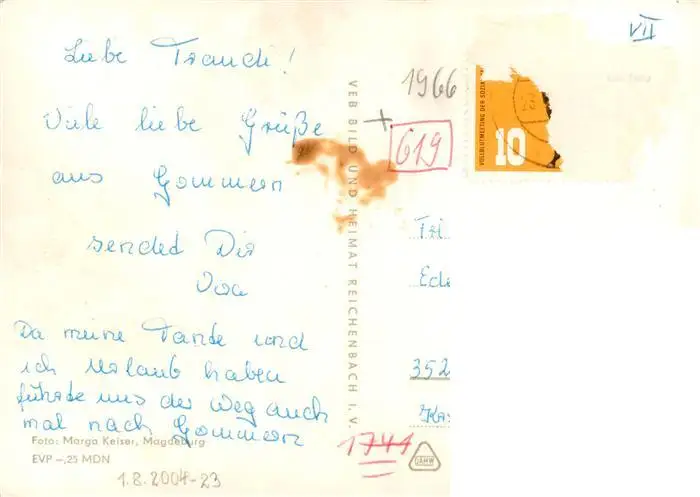 Liebe Traudi!
Viele liebe Grüße
aus Gommern
sendet Dir
Da meine Tante und
ich Urlaub haben
führte uns der Weg auch
mal nach Gommern
Foto: Marga Keiser, Magdeburg
EVP -,25 MDN
1.8.2004-23
VEB BILD UND HEIMAT REICHENBACH I. V.
VII
1966
+
619
VOLLBLUTMEETING DER SOZIA
10
352
1741
DAMW